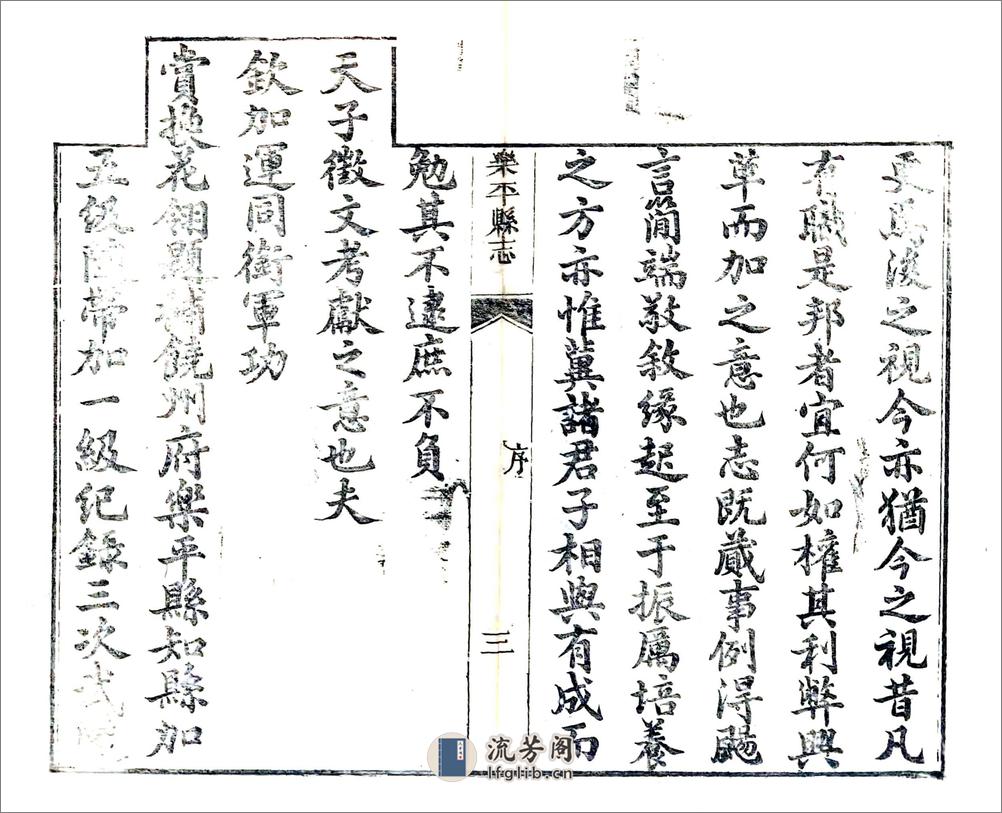 後之視今亦猶今之視昔凡
有職是邦者宜何如權其利弊興
革而加之意也志既蕆事例得颺
言簡端敬敘緣起至于振厲培養
之方亦惟冀諸君子相與有成而
樂平縣志
序
三
勉其不逮庶不負
天子徵文考獻之意也夫
欽加運同銜軍功
賞換花翎題補饒州府樂平縣知縣加
五級隨帶加一級紀錄三次武
流芳阁
lfglib.cn